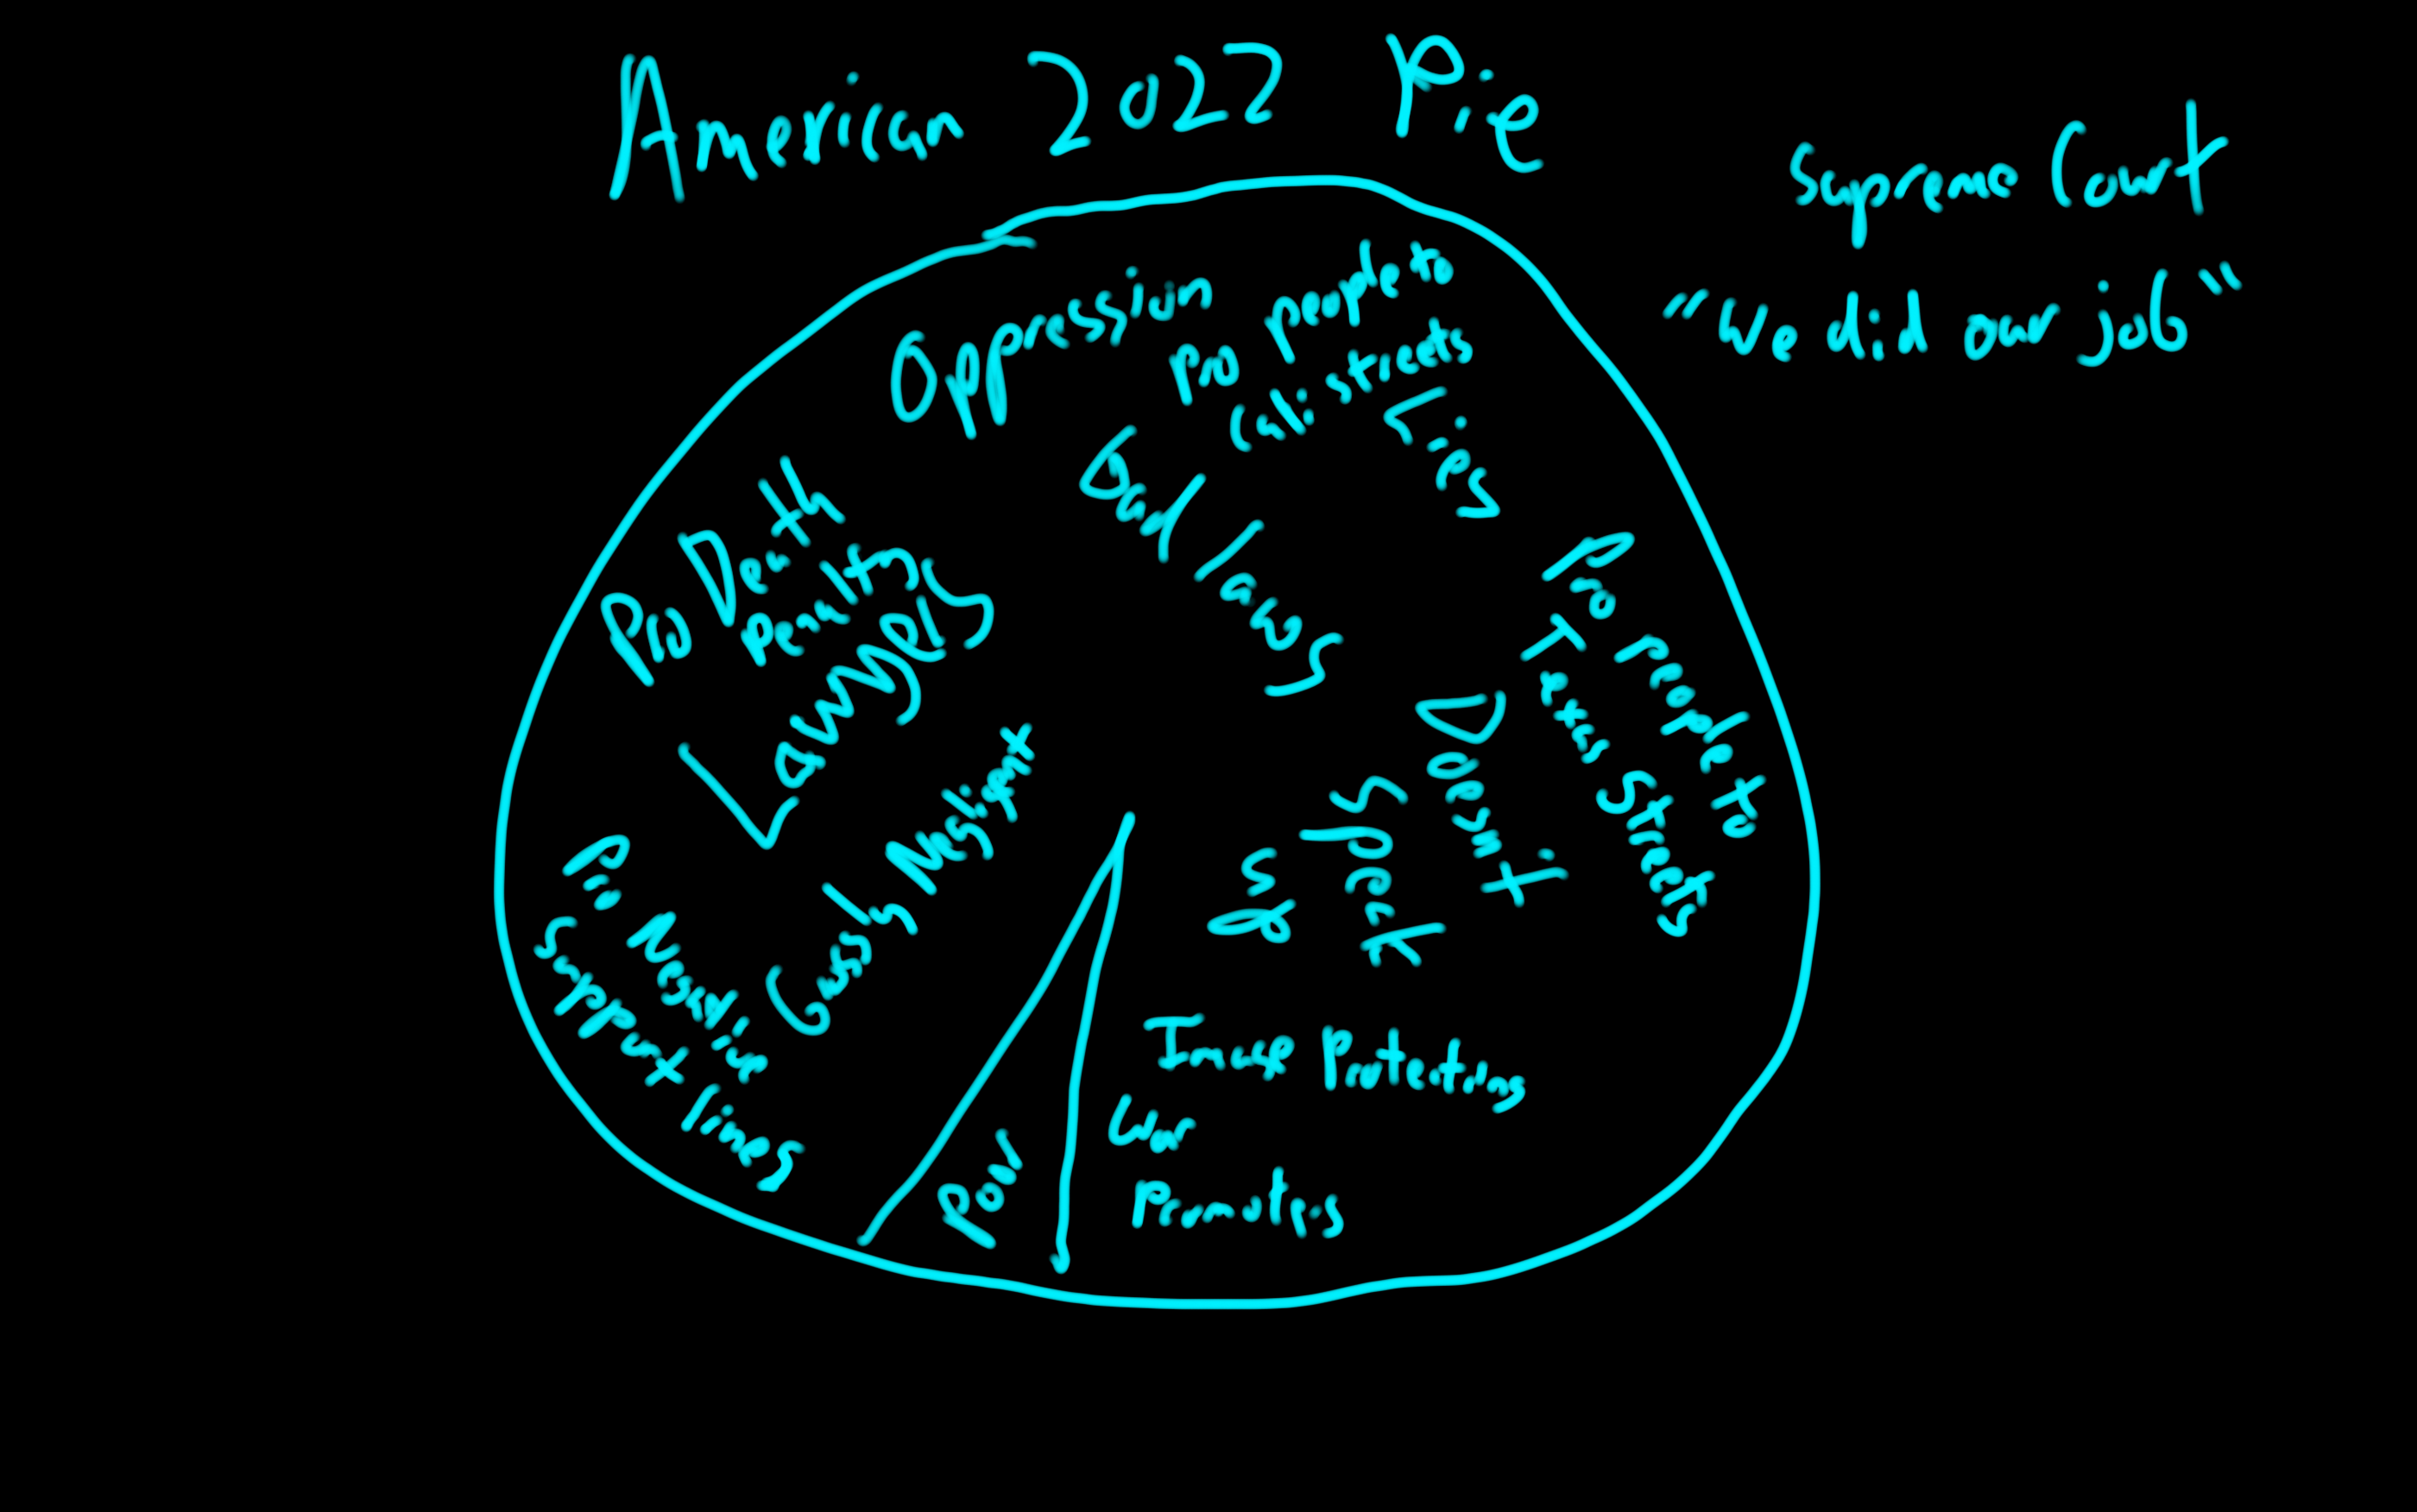 American 2022 Pie
Supreme Court
"We did our job"
Oppression
Pro people to
Cali streets
Lies
Bad laws
Pro Death
penalty
Lawyers
Pro people to
Texas Streets
Doesn't
Speak
up
Grossly Negligent
Pro Negative
Support lines
Image Protecting
War
Promoters
Pow